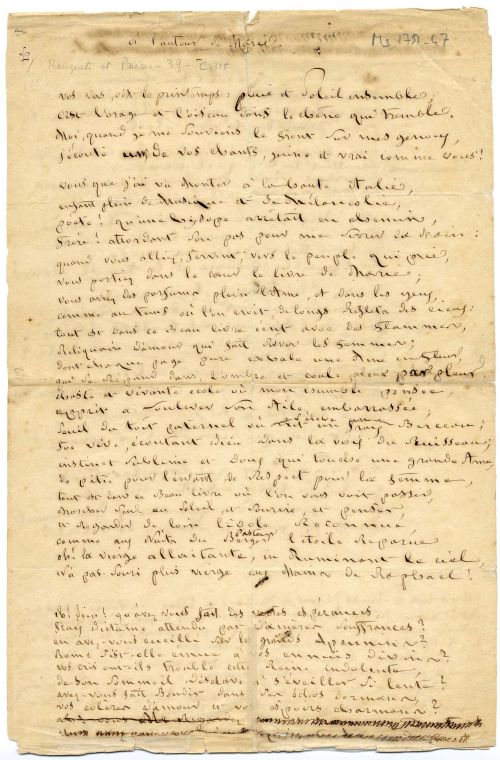 à l'auteur de Marie.
Ms 1751-47
Bouquets et Prières - 39 - C 315
vos vers, c'est le printemps : pluie et Soleil ensemble ;
C'est l'orage et l'oiseau dans le chêne qui tremble.
Moi, quand je me Souviens le front Sur mes genoux,
j'écoute un de vos chants, jeune et vrai comme vous !
vous que j'ai vu Monter à la haute italie,
enfant plein de Musique et de Mélancolie,
poète ! qu'une arrêtait en chemin,
frère ! attardant Son pas pour me Serrer la Main :
quand vous alliez, fervent, vers le peuple qui prie,
vous portiez dans le cœur le livre de Marie ;
vous aviez des parfums plein l'âme, et dans les yeux
comme au tems où l'on croit, de longs Reflets des cieux :
tout est dans ce Beau livre écrit avec des flammes,
Reliquaire d'amour qui fait Rêver les femmes ;
dont chaque page pure exhale une âme en fleur
qui Se Répand dans l'ombre et coule pleur par pleur.
chaste et vivante école où mon humble pensée,
apprit à Soulever Son Aile embarrassée
Seuil du toit paternel où un frais Berceau ;
foi vive, écoutant Dieu dans la voix du Ruisseau ;
instinct Sublime et doux qui touche une grande âme
de pitié pour l'enfant de Respect pour la femme,
tout est dans ce Beau livre où l'on vous voit passer,
Marcher Seul au Soleil et Sourire, et penser,
et Regarder de loin l'idole Reconnue
comme aux Nuits du Pasteur l'étoile Reparue
oh ! la vierge allaitante, en Ruminant le ciel,
N'a pas Souri plus vierge aux Mains de Raphaël !
qu'avez vous fait des vertes espérances,
frais dictame attendu par d'amères Souffrances ?
en avez-vous cueilli Sur les grands Apennins ?
Rome S'est-elle émue à vos ennuis divins ?
vos cris ont-ils troublé cette Reine indolente,
de Son Sommeil D'esclave à S'éveiller Si lente ?
avez-vous fait Bondir dans Ses échos dormans,
vos colères D'amour et vos espoirs charmans ?